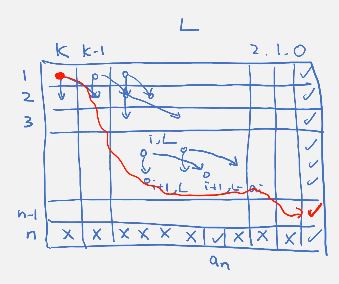 L
K K-1 2.1.0
1 ✓
2 ✓
3 ✓
i,L ✓
✓
i+1,L i+1,L-ai ✓
n-1 ✓
n x x x x x x ✓ x x x ✓
an